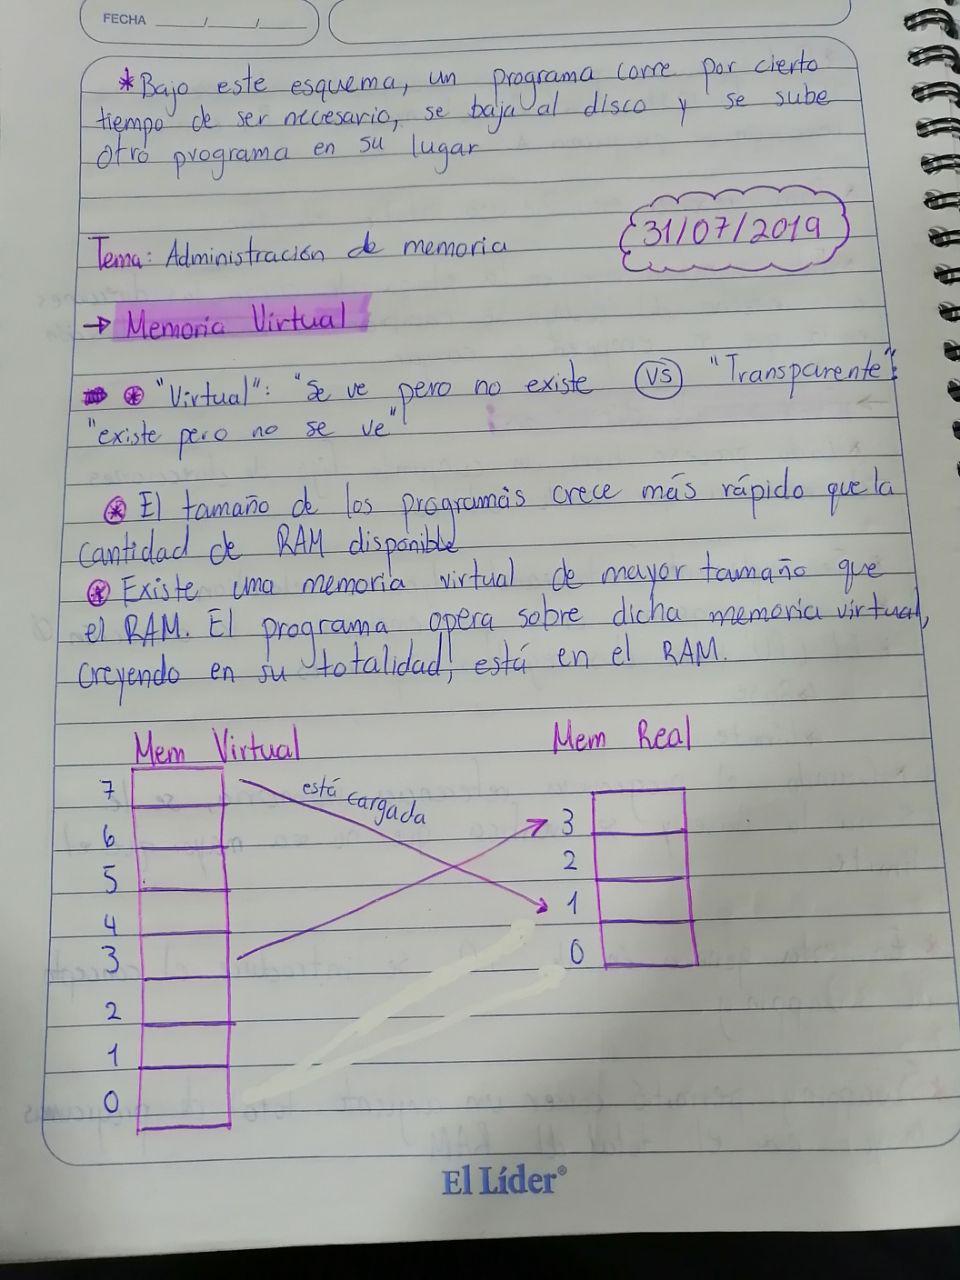 FECHA ___/___/___
*Bajo este esquema, un programa corre por cierto
tiempo de ser necesario, se baja al disco y se sube
otro programa en su lugar
31/07/2019
Tema: Administración de memoria
→ Memoria Virtual
* "Virtual": "Se ve pero no existe VS "Transparente":
"existe pero no se ve"
* El tamaño de los programas crece más rápido que la
cantidad de RAM disponible
* Existe una memoria virtual de mayor tamaño que
el RAM. El programa opera sobre dicha memoria virtual,
creyendo en su totalidad, está en el RAM.
Mem Virtual
7
6
5
4
3
2
1
0
está cargada
Mem Real
3
2
1
0
El Líder®